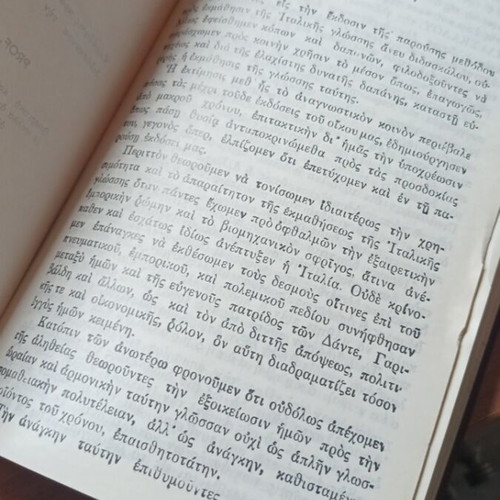 εἰς τὴν ἔκδοσιν τῆς παρούσης μεθόδου
ἐκμάθησιν τῆς Ἰταλικῆς γλώσσης ἄνευ διδασκάλου, οὐ-
ἐφείσθημεν κόπων καὶ δαπανῶν, φιλοδοξοῦντες νὰ
πρὸς κοινὴν χρῆσιν τὸ μέσον ὅπως, ἐπαγωγῶς,
καὶ διὰ τῆς ἐλαχίστης δυνατῆς δαπάνης, καταστῇ εὐ-
χερὴς ἡ ἐκμάθησις τῆς γλώσσης ταύτης.
Ἡ ἐκτίμησις μεθ' ἧς τὸ ἀναγνωστικὸν κοινὸν περιέβαλε
τὰς μέχρι τοῦδε ἐκδόσεις τοῦ οἴκου μας, ἐδημιούργησεν
ἀπὸ μακροῦ χρόνου, ἐπιτακτικὴν δι' ἡμᾶς τὴν ὑποχρέωσιν
ὅπως πάσῃ θυσίᾳ ἀνταποκρινόμεθα πρὸς τὰς προσδοκίας
του, γεγονὸς ὅπερ, ἐλπίζομεν ὅτι ἐπετύχομεν καὶ ἐν τῇ πα-
ρούσῃ ἐκδόσει μας.
Περιττὸν θεωροῦμεν νὰ τονίσωμεν ἰδιαιτέρως τὴν χρη-
σιμότητα καὶ τὸ ἀπαραίτητον τῆς ἐκμαθήσεως τῆς Ἰταλικῆς
γλώσσης ὅταν πάντες ἔχωμεν πρὸ ὀφθαλμῶν τὴν ἐξαιρετικὴν
ἐμπορικὴν ἀκμὴν καὶ τὸ βιομηχανικὸν σφρῖγος, ἅτινα ἀνέ-
καθεν καὶ ἐσχάτως ἰδίως ἀνέπτυξεν ἡ Ἰταλία. Οὐδὲ κρίνο-
μεν ἐπάναγκες νὰ ἐκθέσωμεν τοὺς δεσμοὺς οἵτινες ἐπὶ τοῦ
πνευματικοῦ, ἐμπορικοῦ, καὶ πολεμικοῦ πεδίου συνήφθησαν
μεταξὺ ἡμῶν καὶ τῆς εὐγενοῦς πατρίδος τῶν Δάντε, Γαρι-
βάλδη καὶ ἄλλων, ὡς καὶ τὸν ἀπὸ διττῆς ἀπόψεως, πολιτι-
κῆς τε καὶ οἰκονομικῆς, ρόλον, ὃν αὕτη διαδραματίζει τόσον
ἐγγὺς ἡμῶν κειμένη.
Κατόπιν τῶν ἀνωτέρω φρονοῦμεν ὅτι οὐδόλως ἀπέχομεν
τῆς ἀληθείας θεωροῦντες τὴν ἐξοικείωσιν ἡμῶν πρὸς τὴν
ὡραίαν καὶ ἁρμονικὴν ταύτην γλῶσσαν οὐχὶ ὡς ἁπλῆν γλωσ-
σομαθειακὴν πολυτέλειαν, ἀλλ' ὡς ἀνάγκην, καθισταμένην
προϊόντος τοῦ χρόνου, ἐπαισθητοτάτην.
Τὴν ἀνάγκην ταύτην ἐπιθυμοῦντες